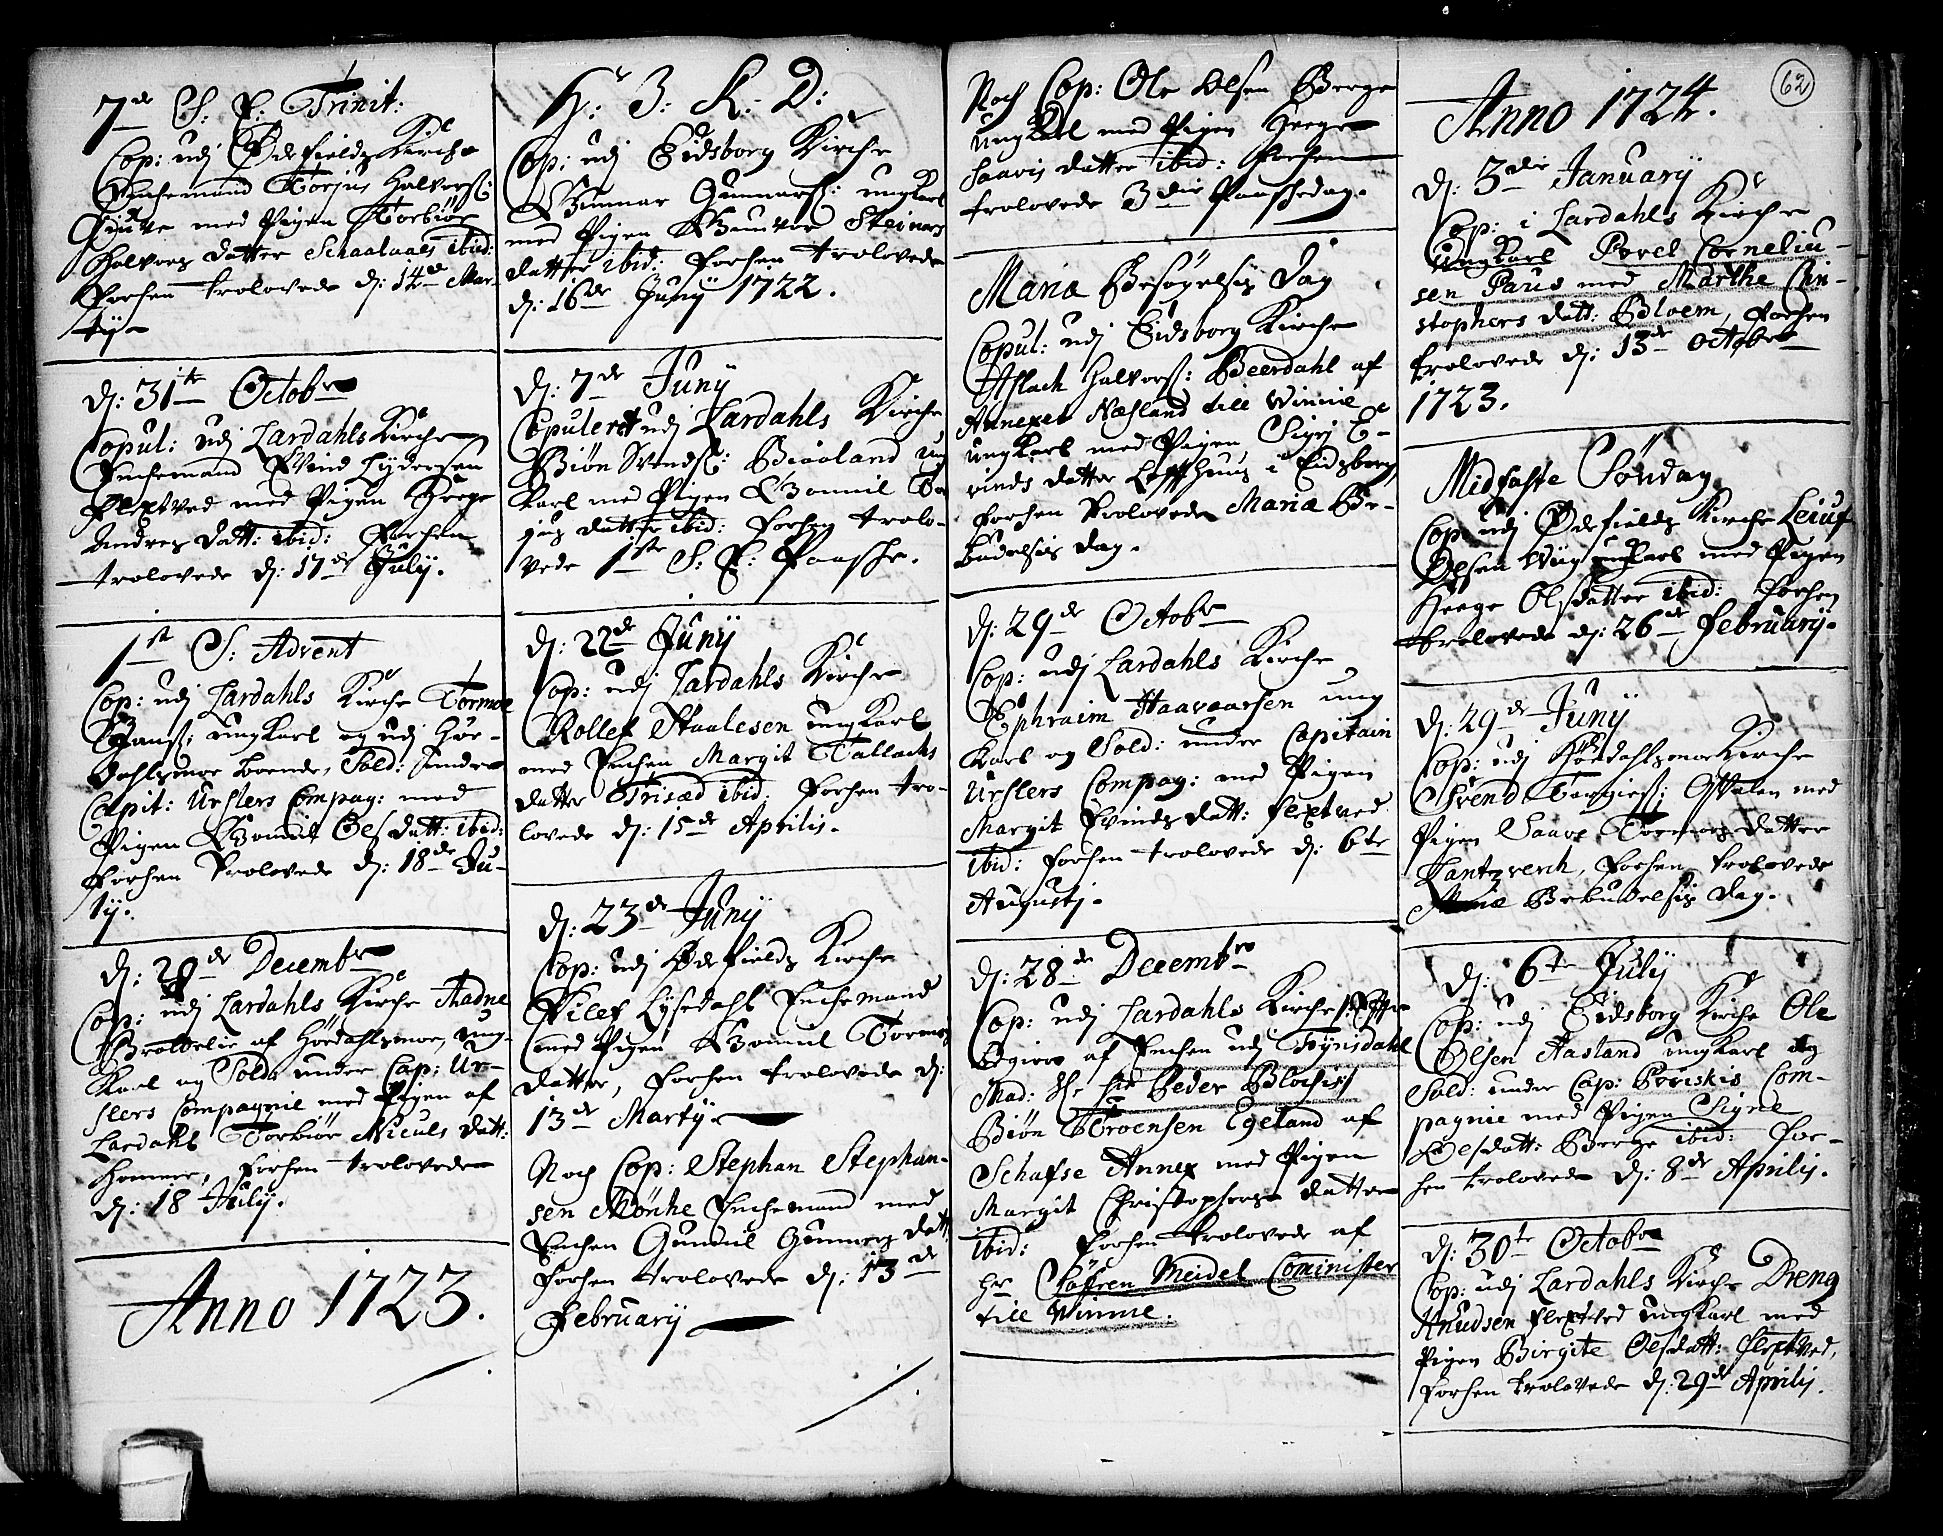 7de S. E. Trinit:
Cop: udj Ødefields Kirche
Enchemand Torjus Halvors:
med Pigen Torbiør
Halvors datter Schaaluaas ibid:
forhen trolovede d: 14de Mar-
tij
d: 31te Octobr
Copul: udj Lardahls Kirche
Enchemand Evind Lydersen
Flextved med Pigen Hæge
Andres datt: ibid: forhen
trolovede d: 17de Julij.
1st S: Advent
Cop: udj Lardahls Kirche Tormoe
ungkarl og udj Høi-
dahlsmoe boende, Sold: under
Capit: Urslers Compag: med
Pigen Gonnil Oelsdatt: ibid:
forhen trolovede d: 18de Ju-
lij.
Decembr
Cop: udj Lardahls Kirche Aadne
af Høidahlsmoe, ung-
karl og Sold: under Cap: Ur-
slers Compagnie med Pigen af
Lardahl Torbiør Niculs datt:
forhen trolovede
d: 18 Julij.
Anno 1723.
H: 3: K: D:
Cop: udj Eidsborg Kirche
Gunnar Gunnars: ungkarl
med Pigen Gunvor Steinars
datter ibid: forhen trolovede
d: 16de Junij 1722.
d: 7de Junij
Copuleret udj Lardahls Kirche
Biøn Svends: Biaaland ung
karl med Pigen Gonnil Tor
jus datter ibid: forhen trolo-
vede 1ste S: E: Paasche.
d: 22de Junij
Cop: udj Lardahls Kirche
Rollef Staalesen ungkarl
med Enchen Margit Tallachs
datter Trisæd ibid: forhen tro-
lovede d: 15de Aprilis.
d: 23de Junij
Cop: udj Ødefields Kirche
Lysedahl Enchemand
med Pigen Gonnil Tormos
datter, forhen trolovede d:
13de Martij.
Noch Cop: Stephan Stephan-
sen Mønke Enchemand med
Enchen Gunnil Gunners datt:
forhen trolovede d: 13de
Februarij
Noch Cop: Ole Olsen Berge
ungkarl med Pigen Hæge
Saavis datter ibid: forhen
trolovede 3die Paaschedag.
Mariæ Besøgelsis Dag
Copul: udj Eidsborg Kirche
Aslach Halvors: Beerdahl af
Annexet Næsland till Winnie
ungkarl med Pigen Sigrj E-
vinds datter Loffthuus i Eidsborg
forhen trolovede Mariæ Be-
budelsis dag.
d: 29de Octobr
Cop: udj Lardahls Kirche
Ephraim Haavaarsen ung
karl og Sold: under Capitain
Urslers Compag: med Pigen
Margit Evinds datt: Flextved
ibid: forhen trolovede d: 6te
Augustj.
d: 28de Decembr
Cop: udj Lardahls Kirche
af Enchen udj Tynsdahl
Mad: Sl: Hr Peder Blochis
Biøn Troensen Egeland af
Schafse Annex med Pigen
Margit Christophers datter
ibid: forhen trolovede af
Hr Søffren Meidel Cominister
till Winnie.
62
Anno 1724.
d: 3die Januarij
Cop: i Lardahls Kirche
ungkarl Povel Corneliu-
sen Paus med Marthe Chri-
stophers datt: Bloem, forhen
trolovede d: 13de Octobr
1723.
Midfaste Søndag
Cop: udj Ødefields Kirche Leiuf
Olsen Wiig ungkarl med Pigen
Hæge Olsdatter ibid: forhen
trolovede d: 26de Februarij.
d: 29de Junij
Cop: udj Høidahlsmoe Kirche
Svend Torgies: Offteien med
Pigen Saave Tormos datter
Lantzverch, forhen trolovede
Mariæ Bebudelsis dag.
d: 6te Julij
Cop: udj Eidsborg Kirche Ole
Olsen Aasland ungkarl og
Sold: under Cap: Poviskis Com-
pagnie med Pigen Signe
Oelsdatt: Berge ibid: for-
hen trolovede d: 8de Aprilis.
d: 30te Octobr
Cop: udj Lardahls Kirche Dreng
Knudsen Flextved ungkarl med
Pigen Birgite Olsdatt: Flextved,
forhen trolovede d: 29de Aprilis.